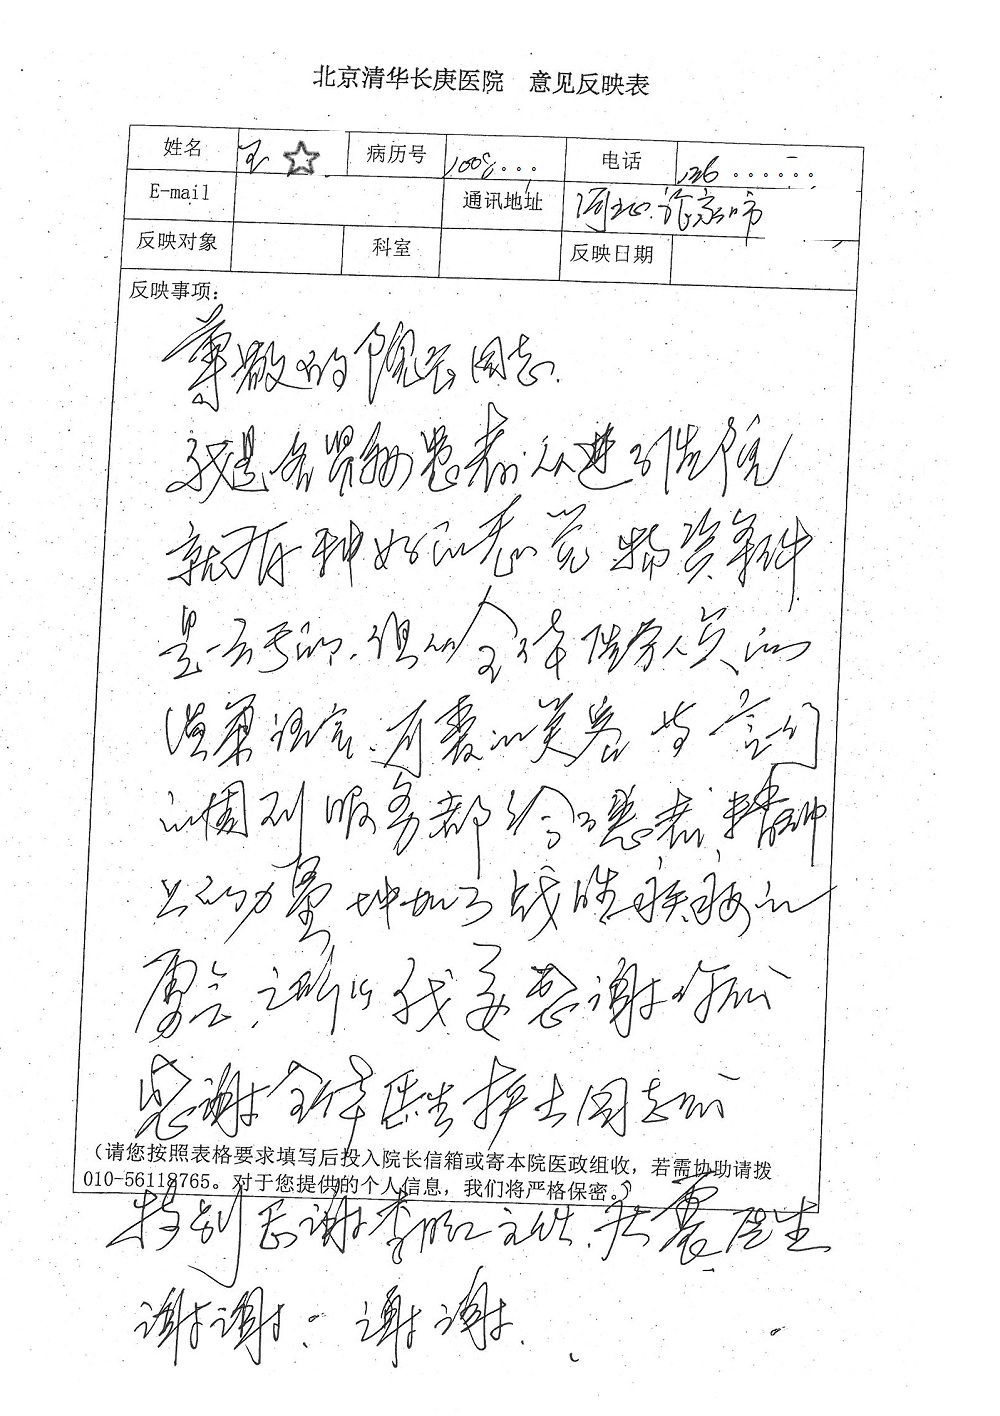 北京清华长庚医院 意见反映表
姓名 王 ☆ 病历号 100%... 电话 126......
E-mail 通讯地址 河北.
反映对象 科室 反映日期
反映事项：
尊敬的院长同志.
我是名 患者.从进了医院
就有种好的感觉 物资条件
是一方面的.但从全体医务人员的
温柔语言.有爱的笑容 与它们
的周到服务都给了患者.精神
上的力量 增加了战胜疾病的
勇气.之所以我要感谢你们
感谢全体医生护士同志们
（请您按照表格要求填写后投入院长信箱或寄本院医政组收，若需协助请拨
010-56118765。对于您提供的个人信息，我们将严格保密。）
特别感谢李 主任. 震医生
谢谢! 谢谢.